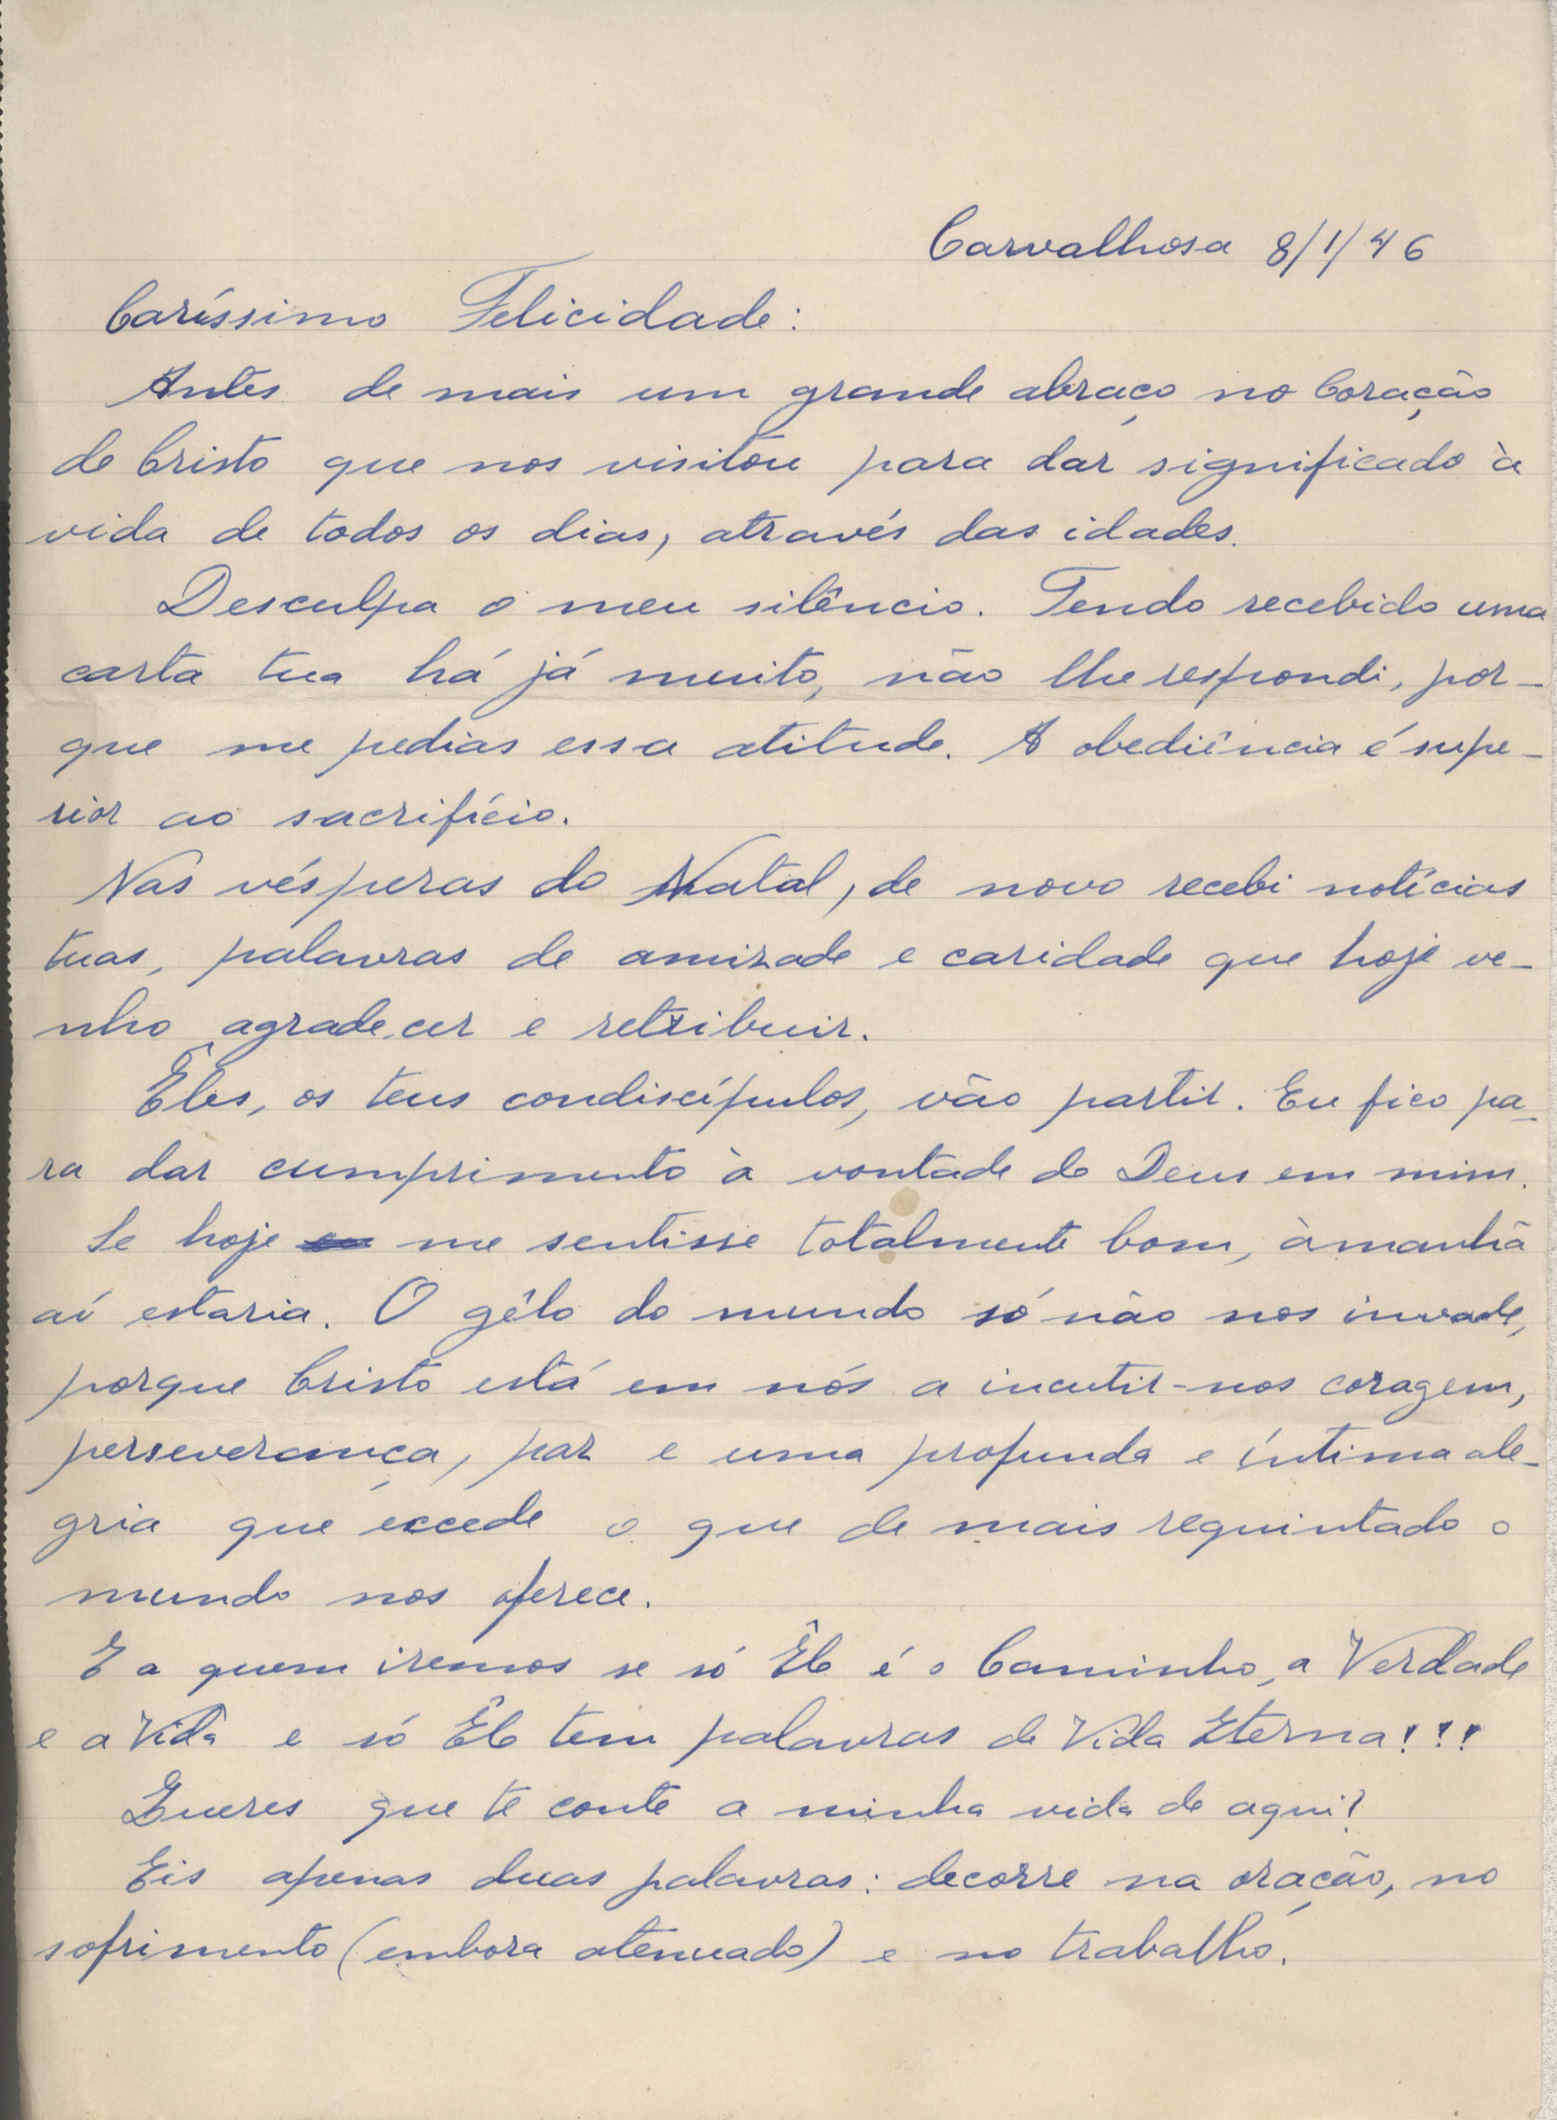 Carvalhosa 8/1/46
Caríssimo Felicidade:
Antes de mais um grande abraço no Coração
de Cristo que nos visitou para dar significado à
vida de todos os dias, através das idades.
Desculpa o meu silêncio. Tendo recebido uma
carta tua há já muito, não lhe respondi, por-
que me pedias essa atitude. A obediência é supe-
rior ao sacrifício.
Nas vésperas do Natal, de novo recebi notícias
tuas, palavras de amizade e caridade que hoje ve-
nho agradecer e retribuir.
Êles, os teus condiscípulos, vão partir. Eu fico pa-
ra dar cumprimento à vontade de Deus em mim.
Se hoje me sentisse totalmente bom, àmanhã
aí estaria. O gêlo do mundo só não nos invade,
porque Cristo está em nós a incutir-nos coragem,
perseverança, paz e uma profunda e íntima ale-
gria que excede o que de mais requintado o
mundo nos oferece.
E a quem iremos se só Êle é o Caminho, a Verdade
e a Vida e só Êle tem palavras de Vida Eterna!!!
Queres que te conte a minha vida de aqui?
Eis apenas duas palavras: decorre na oração, no
sofrimento (embora atenuado) e no trabalho.